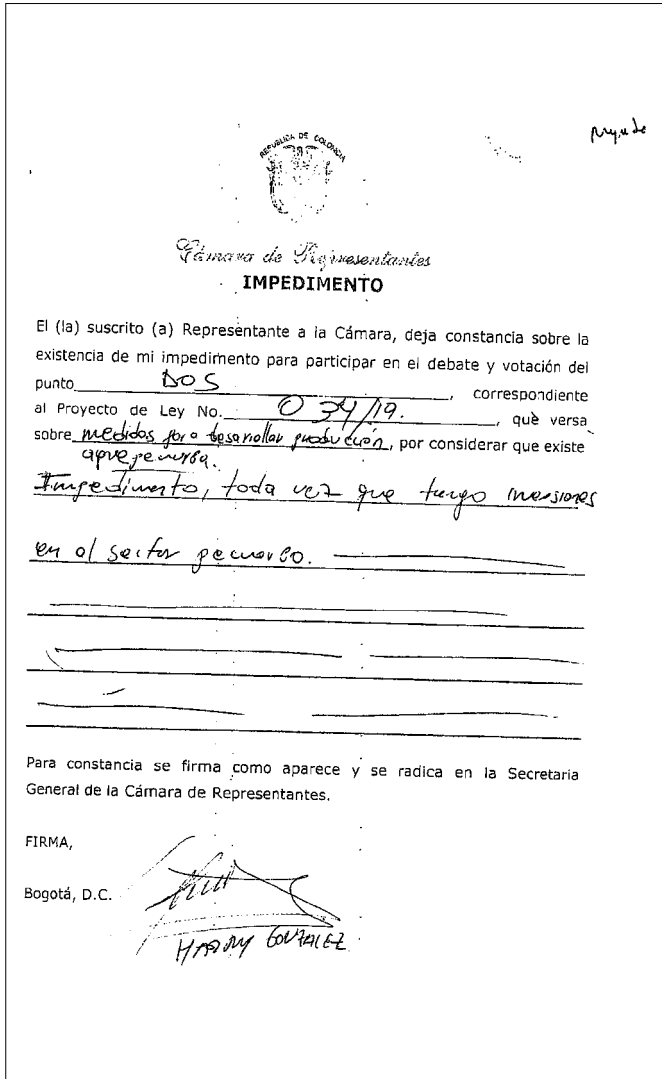 REPUBLICA DE COLOMBIA
Cámara de Representantes
IMPEDIMENTO
El (la) suscrito (a) Representante a la Cámara, deja constancia sobre la
existencia de mi impedimento para participar en el debate y votación del
punto DOS, correspondiente
al Proyecto de Ley No. 034/19., que versa
sobre medidas para desarrollar producción, por considerar que existe
Impedimento, toda vez que tengo inversiones
en el sector pecuario.
Para constancia se firma como aparece y se radica en la Secretaria
General de la Cámara de Representantes.
FIRMA,
Bogotá, D.C.
HARRY GONZALEZ